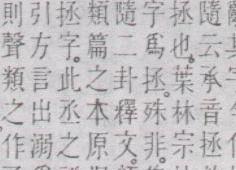 隨云承音拯
拯也。葉林宗
字馬拯殊非。
隨二卦釋文。
類篇之本原
拯字。此丞之
引方言出溺
則聲類之作